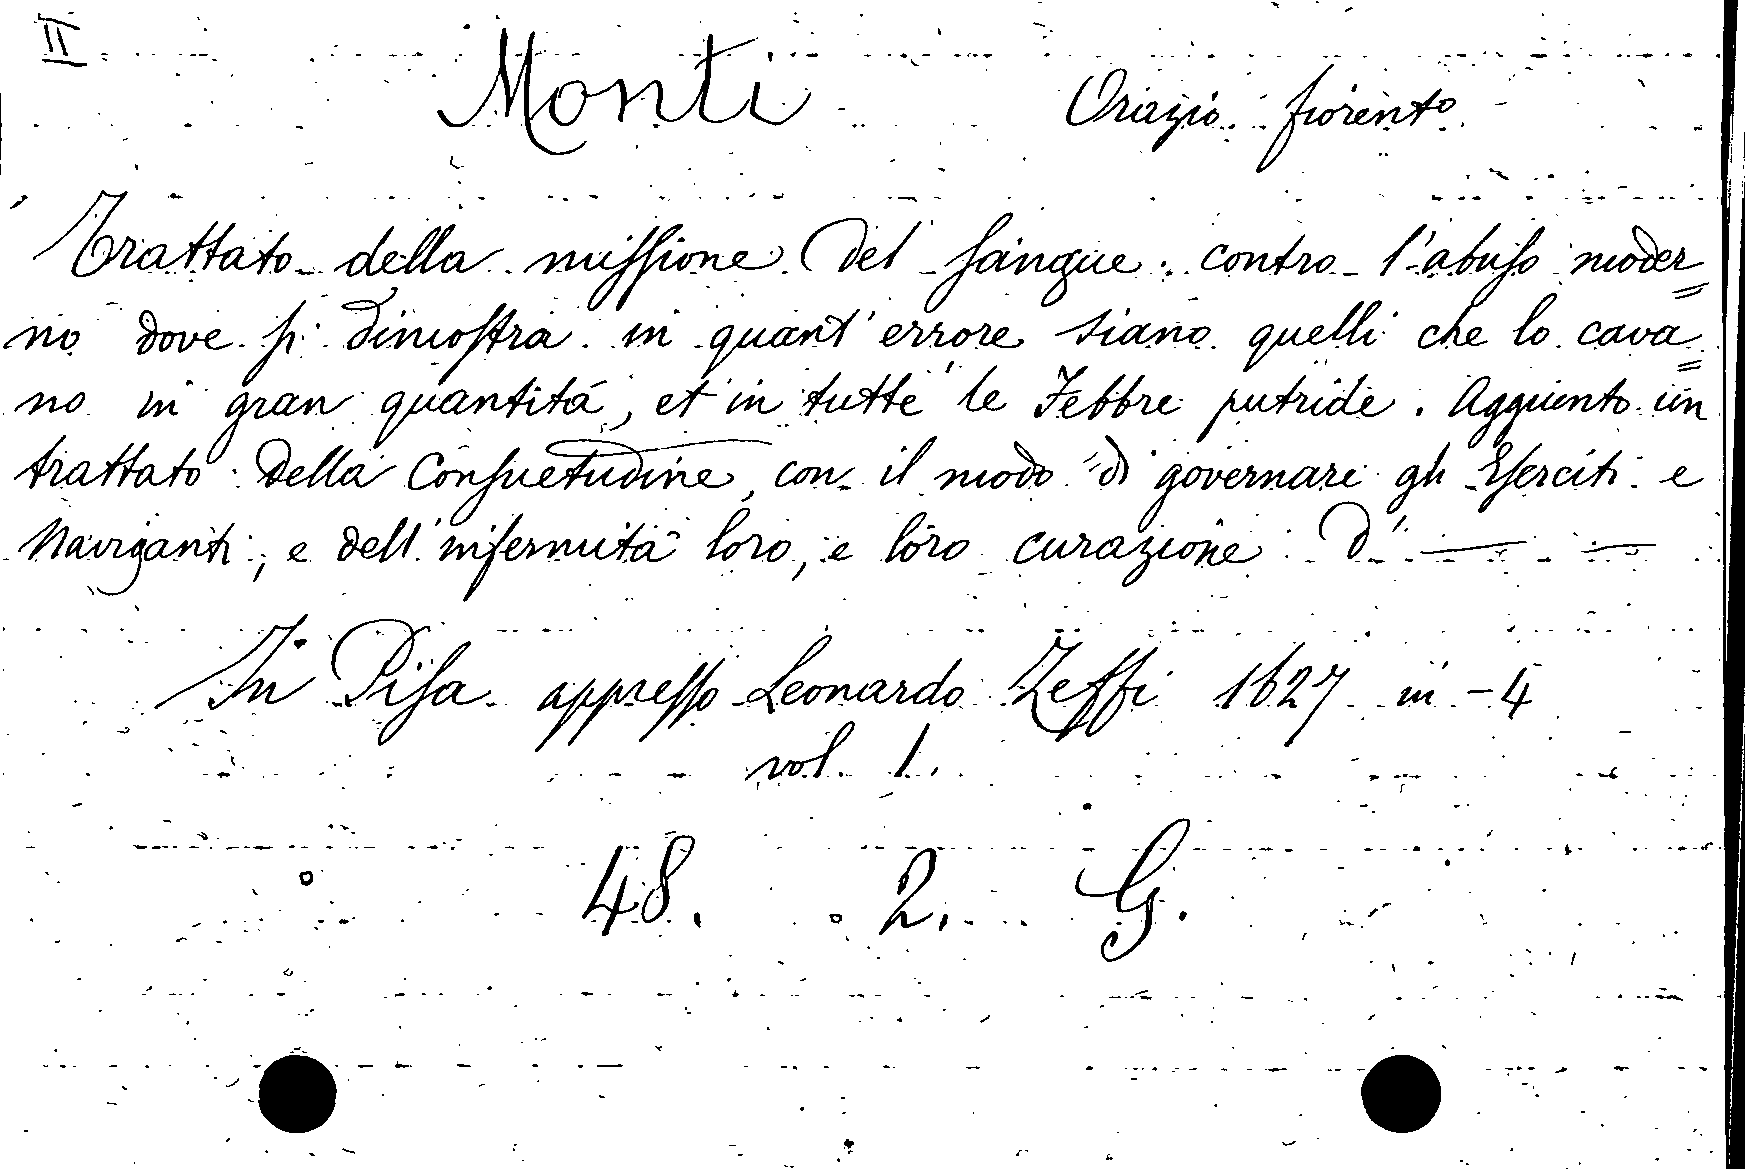 II
Monti Orazio fiorent.º
Trattato della missione del sangue contro l'abuso moder=
no dove si dimostra in quant' errore siano quelli che lo cava=
no in gran quantità, et in tutte le Febbre putride. Aggiunto un
trattato della Consuetudine, con il modo di governare gli Eserciti e
Naviganti, e dell'infermità loro, e loro curazione D' — —
In Pisa appresso Leonardo Zeffi 1627 in - 4
vol. 1.
48. 2. G.